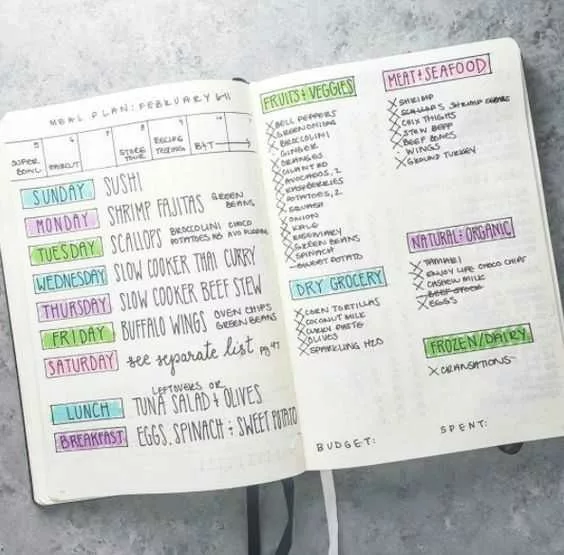 MEAL PLAN: FEBRUARY
5 6 7 8 9 10
SUPER BOWL
HAIRCUT
STORE TOUR
RECIPE TESTING
SUNDAY SUSHI
MONDAY SHRIMP FAJITAS GREEN BEANS
TUESDAY SCALLOPS BROCCOLINI CHOCO
POTATOES AVO PUDDING
WEDNESDAY SLOW COOKER THAI CURRY
THURSDAY SLOW COOKER BEEF STEW
FRIDAY BUFFALO WINGS OVEN CHIPS
GREEN BEANS
SATURDAY see separate list pg 47
LEFTOVERS OR
LUNCH TUNA SALAD + OLIVES
BREAKFAST EGGS, SPINACH + SWEET POTATO
FRUITS + VEGGIES
BELL PEPPERS
GREEN ONION
BROCCOLINI
GINGER
ORANGES
CILANTRO
AVOCADOS, 2
RASPBERRIES
POTATOES, 2
SQUASH
ONION
KALE
ROSEMARY
GREEN BEANS
SPINACH
SWEET POTATO
DRY GROCERY
CORN TORTILLAS
COCONUT MILK
CURRY PASTE
OLIVES
SPARKLING H2O
MEAT + SEAFOOD
SHRIMP
SCALLOPS
CHIX THIGHS
STEW BEEF
BEEF BONES
WINGS
GROUND TURKEY
NATURAL + ORGANIC
TAMARI
ENJOY LIFE CHOCO CHIPS
CASHEW MILK
BEEF STOCK
EGGS
FROZEN/DAIRY
BUDGET:
SPENT: